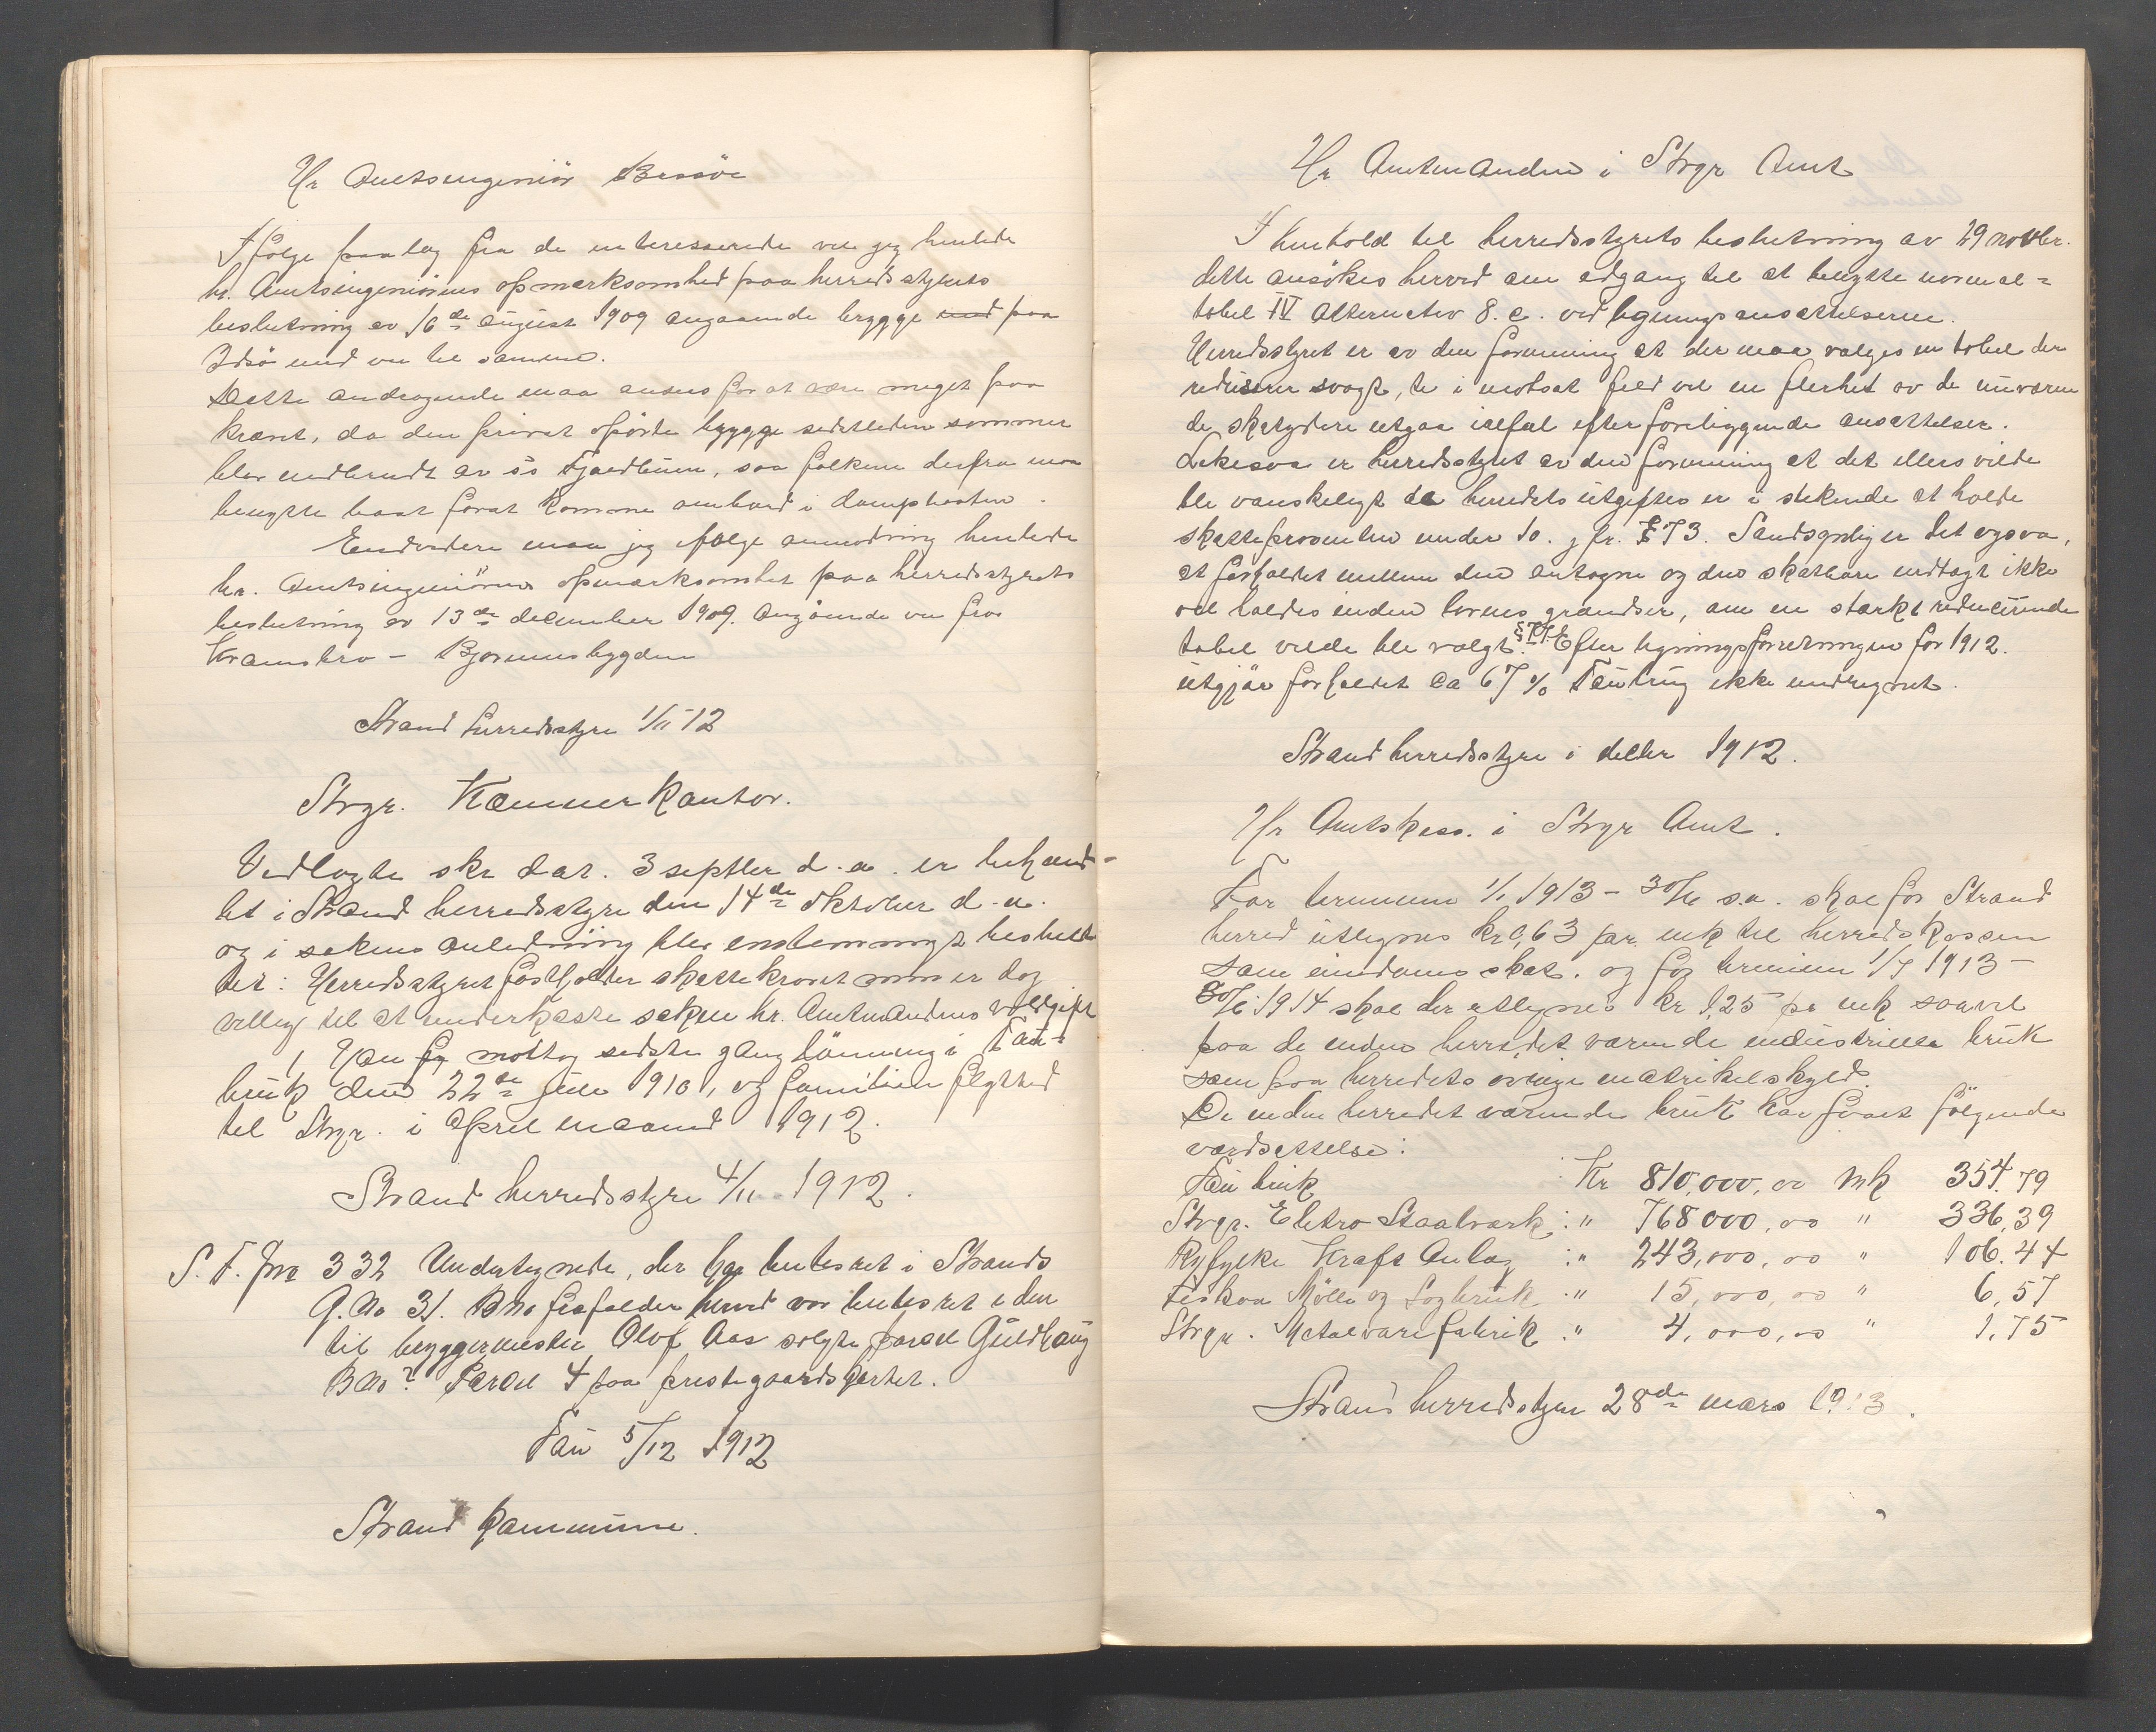 Hr Amtsingeniør Bessöe
Ifölge paalæg fra de interesserede vil jeg henlede
hr. Amtsingeniörens opmerksomhed paa herredsstyrets
beslutning av 16de august 1909 angaaende brygge med paa
Idsö med vei til samme.
Dette andragende maa ansees for at være meget paa
krævet, da den privat opförte brygge sidstleden sommer
blev nedbrudt av ss Fjordbuen, saa folkene derfra maa
benytte baat forat komme ombord i dampbaaten.
Endvidere maa jeg ifölge anmodning henlede
hr. Amtsingeniörens opmerksomhet paa herredsstyrets
beslutning av 13de december 1909. angående vei fra
Kramsbro - Bjørheimsbygden
Strand herredsstyre 1/11-12
Stvgr. Kæmnerkontor.
Vedlagte skr dat. 3 septbr d.a. er behand-
let i Strand herredsstyre den 14de oktober d.a.
og i sakens anledning blev enstemmigt beslut-
tet: Herredsstyret fastholder skattekravet men er dog
villig til at underkaste saken hr. Amtmandens voldgift
! Han mottog sidste gang lönning i Tau-
bruk den 22de juli 1910, og familien flyttet
til Stvgr. i April maaned 1912.
Strand herredsstyre 4/11 1912.
S. T. fra 332 Undertegnede, der har heitesret i Strands
G.No 31. BNo frafalder herved vor beitesret i den
til bryggermester Olof Aas solgte parsel Guldhaug
BNo? Parsel 4 paa prestegaardskartet.
Tau 5/12 1912
Strand kommune.
Hr Amtmanden i Stvgr Amt
I henhold til herredsstyrets beslutning av 29 novbr.
dette ansökes herved om adgang til at benytte normal=
tabel IV Alternativ 8.c. ved ligningsansættelserne.
Herredsstyret er av den formening at der maa vælges en tabel der
reduserer svagt, ti i motsat fald vil en flerhet av de nuværen
de skatydere utgaa ialfal efter foreliggende ansættelser.
Likesaa er herredsstyret av den formening at det ellers vilde
bli vanskeligt da herredets utgifter er i stikende at holde
skatteprosenten under 10. jfr. § 73. Sandsynlig er det ogsaa,
at forholdet mellem den antagne og den skatbare indtægt ikke
vil holdes inden lovens grændser, om en stærkt reducerende
tabel vilde bli valgt. § 71. Efter ligningsforretningen for 1912.
utgjör forholdet ca 67 % Tautrug ikke medregnet.
Strand herredsstyre i decbr 1912.
Hr Amtskass. i Stvgr Amt.
For terminen 1/1 1913 - 30/6 s.a. skal for Strand
herred utlignes kr 0,63 pr. mk til herredskassen
som eiendomsskat. og for termien 1/7 1913 -
30/6 1914 skal der utlignes kr 1,25 pr mk saavel
paa de inden herredet værende industrielle bruk
som paa herredets øvrige matrikelskyld.
De inden herredet værende bruk har faaet fölgende
værdsettelse:
Tau bruk : Kr 810,000,00 Mk 354.79
Stvgr. Eletro Staalværk : " 768000,00 " 336,39
Ryfylke Kraft Anlæg : " 243,000,00 " 106.44
Fiskaa Mölle og Sagbruk : " 15,000,00 " 6,57
Stvgr. Metalvarefabrik : " 4,000,00 " 1,75
Strand herredsstyre 28de mars 1913.